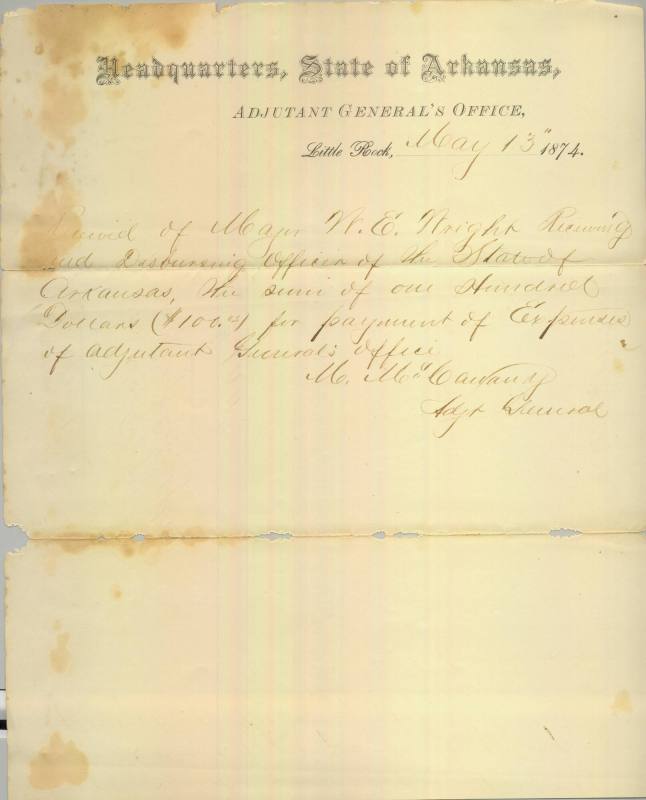 Headquarters, State of Arkansas,
ADJUTANT GENERAL'S OFFICE,
Little Rock, May 13" 1874.
of Major W. E. Wright Receiving
and Disbursing Officer of the State of
Arkansas, the sum of one Hundred
Dollars ($100.00) for payment of Expenses
of Adjutant General's office
M.
Adjt General